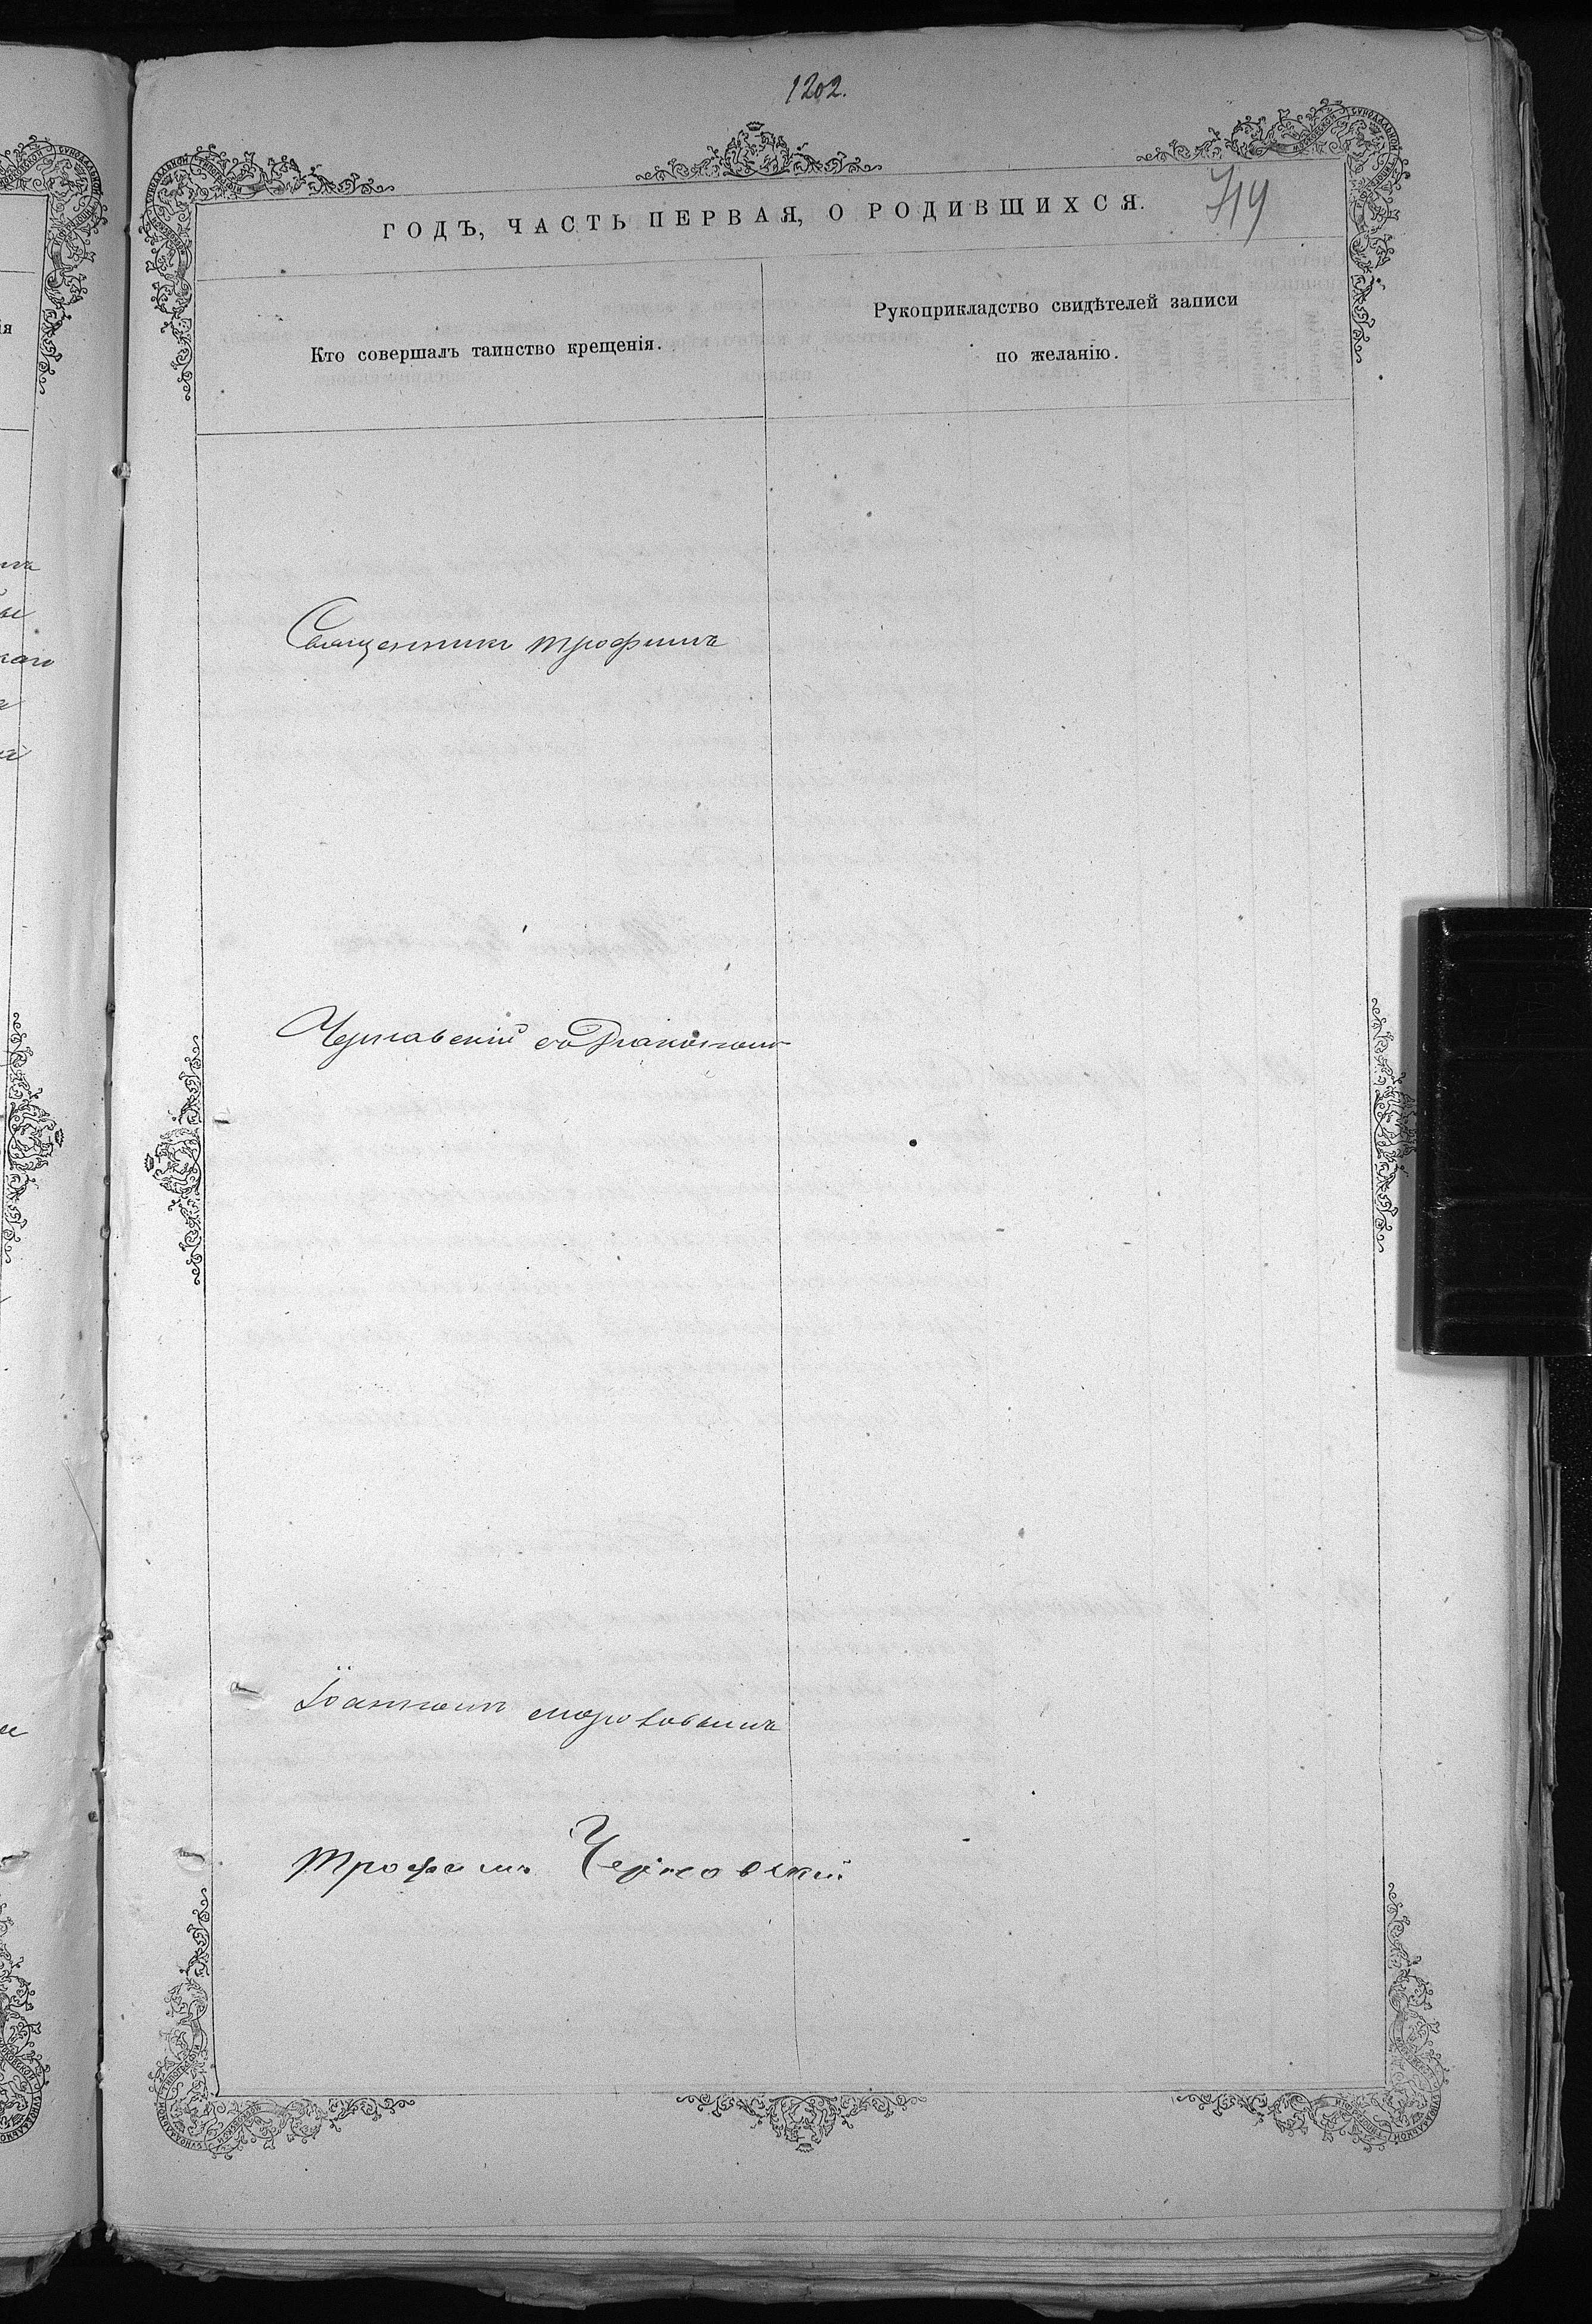 1202.
ГОДЪ, ЧАСТЬ ПЕРВАЯ, О РОДИВШИХСЯ.
719
Кто совершалъ таинство крещенія.
Рукоприкладство свидѣтелей записи
по желанію.
Священникъ трофимъ
Чернавскій съ Діакономъ
Іоанномъ
трофимъ Черновскій